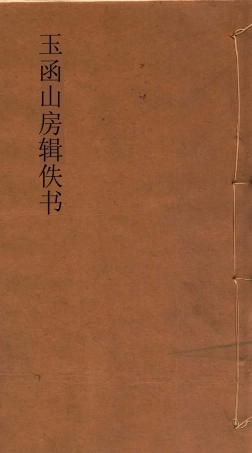 玉函山房辑佚书